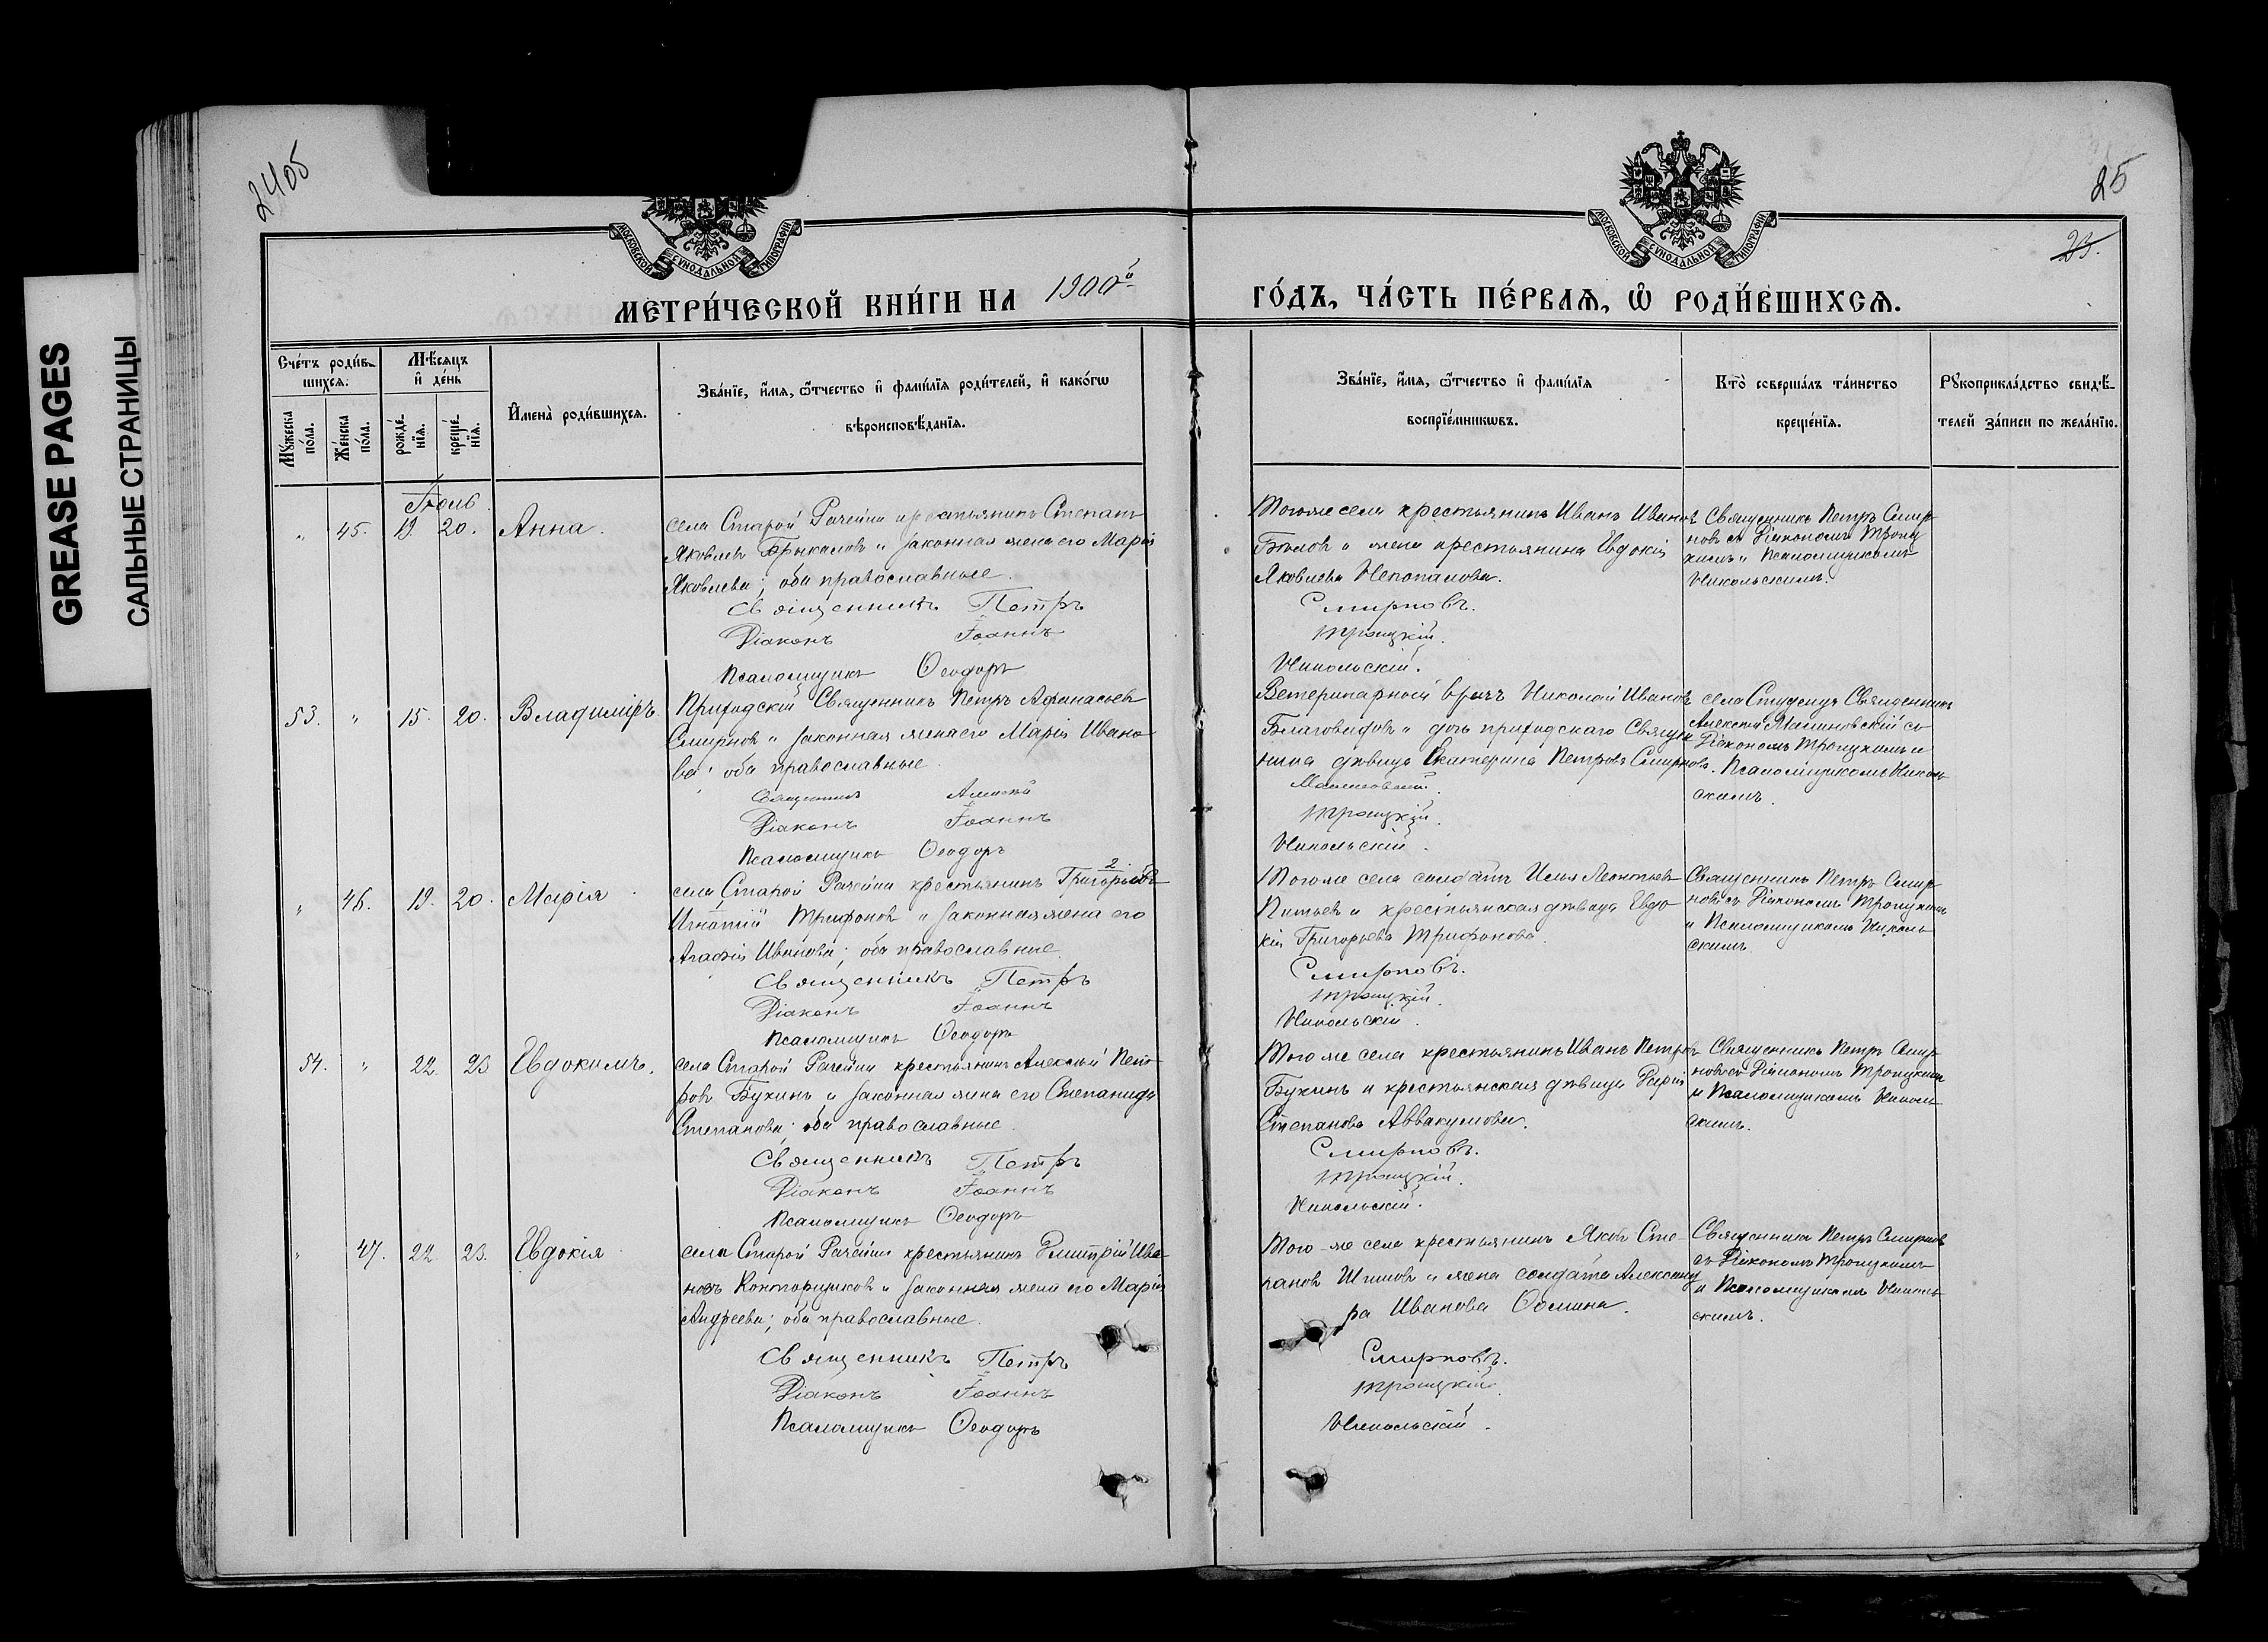 GREASE PAGES
САЛЬНЫЕ СТРАНИЦЫ
2405
25
23.
МОСКОВСКОЙ СѴНОДАЛЬНОЙ ТИПОГРАФІИ
МОСКОВСКОЙ СѴНОДАЛЬНОЙ ТИПОГРАФІИ
МЕТРИ́ЧЕСКОЙ КНИ́ГИ НА 1900й
ГО́ДЪ, ЧА́СТЬ ПЕ́РВАѦ, Ѡ҆ РОДИ́ВШИХСѦ.
Сче́тъ роди́в-
шихсѧ.
Мꙋ́жеска по́ла.
Же́нска по́ла.
Мѣ́сѧцъ
и҆ де́нь
рожде́-
нїѧ.
креще́-
нїѧ.
И҆мена̀ роди́вшихсѧ.
Зва́нїе, и҆́мѧ, ѻ҆́тчество и҆ фами́лїѧ роди́телей, и҆ како́гѡ
вѣроисповѣ́данїѧ.
Зва́нїе, и҆́мѧ, ѻ҆́тчество и҆ фами́лїѧ
воспрїе́мникѡвъ.
Кто̀ соверша́лъ та́инство
креще́нїѧ.
Рꙋкоприкла́дство свидѣ́-
телей за́писи по жела́нїю.
Іюль
" 45. 19. 20. Анна.
села Старой Рачейки крестьянинъ Степанъ
Яковлевъ и законная жена его Марія
Яковлева; оба православные.
Священникъ Петръ
Діаконъ Іоаннъ
Псаломщикъ Ѳеодоръ
Тогоже села крестьянинъ Иванъ Ивановъ
Бѣловъ и жена крестьянина Евдокія
Яковлева
Смирновъ.
Троицкій.
Никольскій.
Священникъ Петръ Смир-
новъ съ Діакономъ Троиц-
кимъ и Псаломщикомъ
Никольскимъ.
53. " 15. 20. Владиміръ.
Приходскій Священникъ Петръ Афанасьевъ
Смирновъ и законная жена его Марія Ивано-
ва; оба православные.
Священникъ Алексій
Діаконъ Іоаннъ
Псаломщикъ Ѳеодоръ
Ветеринарный врачъ Николай Ивановъ
Благовидовъ и дочь приходскаго Священ-
ника дѣвица Екатерина Петрова Смирнова.
Малиновскій.
Троицкій.
Никольскій.
села Студенца Священникъ
Алексій Малиновскій съ
Діакономъ Троицкимъ и
Псаломщикомъ Николь-
скимъ.
" 46. 19. 20. Марія
села Старой Рачейки крестьянинъ Григорьевъ 2
Игнатій Трифоновъ и законная жена его
Агафія Иванова; оба православные.
Священникъ Петръ
Діаконъ Іоаннъ
Псаломщикъ Ѳеодоръ
Тогоже села солдатъ Илья Леонтьевъ
и крестьянская дѣвица Евдо-
кія Григорьева Трифонова.
Смирновъ.
Троицкій.
Никольскій.
Священникъ Петръ Смир-
новъ съ Діакономъ Троицкимъ
и Псаломщикомъ Николь-
скимъ.
54. " 22. 23 Евдокимъ.
села Старой Рачейки крестьянинъ Алексѣй Пет-
ровъ Бухинъ и законная жена его Степанида
Степанова; оба православные.
Священникъ Петръ
Діаконъ Іоаннъ
Псаломщикъ Ѳеодоръ
Того же села крестьянинъ Иванъ Петровъ
Бухинъ и крестьянская дѣвица
Степанова Аввакумова.
Смирновъ.
Троицкій.
Никольскій.
Священникъ Петръ Смир-
новъ съ Діакономъ Троицкимъ
и Псаломщикомъ Николь-
скимъ.
" 47. 22. 23. Евдокія
села Старой Рачейки крестьянинъ Дмитрій Ива-
новъ Конторщиковъ и законная жена его Марія
Андреева; оба православные.
Священникъ Петръ
Діаконъ Іоаннъ
Псаломщикъ Ѳеодоръ
Того-же села крестьянинъ Яковъ Сте-
пановъ Шишовъ и жена солдата Александ-
ра Иванова Ѳомина.
Смирновъ.
Троицкій.
Никольскій.
Священникъ Петръ Смирновъ
съ Діакономъ Троицкимъ
и Псаломщикомъ Николь-
скимъ.